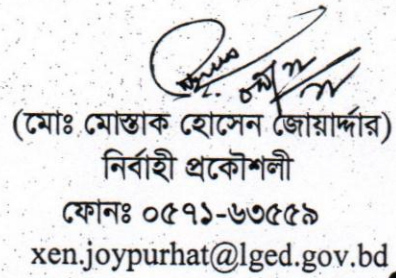 (মোঃ মোস্তাক হোসেন জোয়ার্দ্দার)
নির্বাহী প্রকৌশলী
ফোনঃ ০৫৭১-৬৩৫৫৯
xen.joypurhat@lged.gov.bd